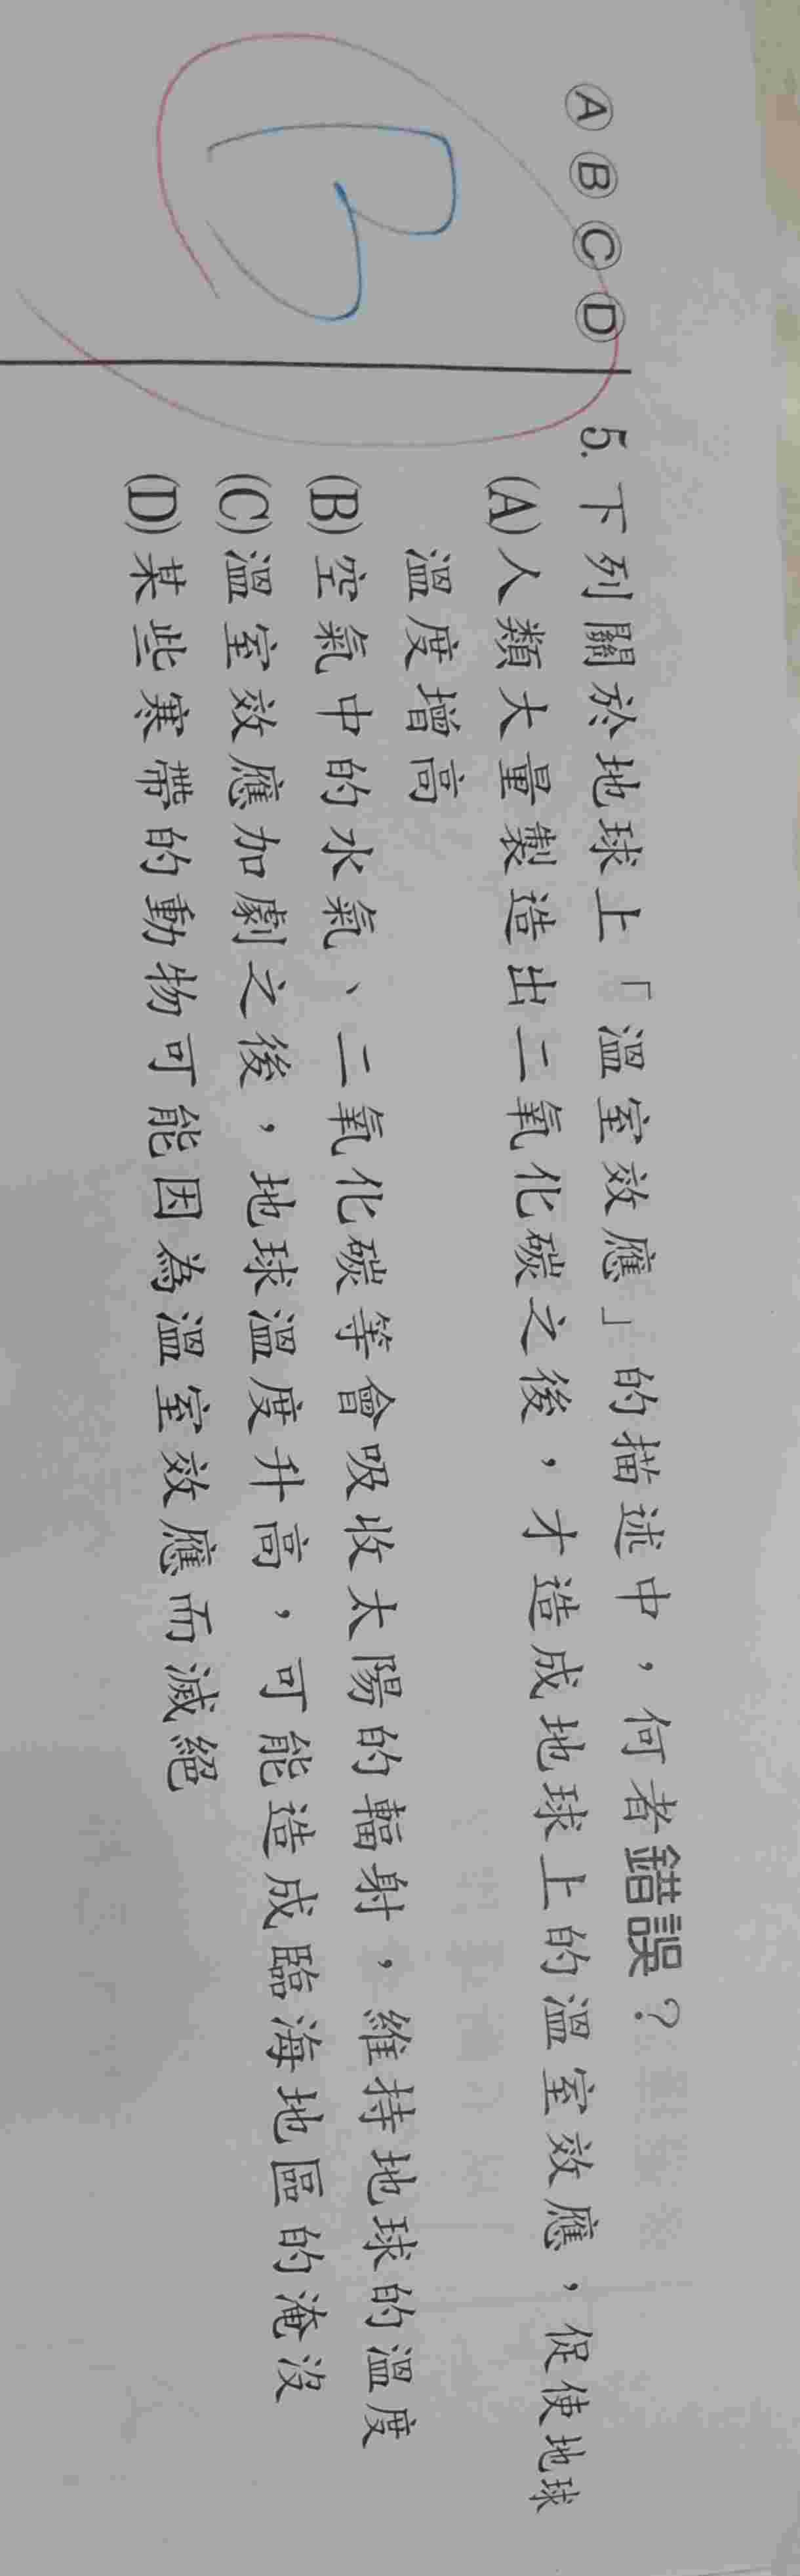 Ⓐ Ⓑ Ⓒ Ⓓ
B
5. 下列關於地球上「溫室效應」的描述中，何者錯誤？
(A)人類大量製造出二氧化碳之後，才造成地球上的溫室效應，促使地球
溫度增高
(B)空氣中的水氣、二氧化碳等會吸收太陽的輻射，維持地球的溫度
(C)溫室效應加劇之後，地球溫度升高，可能造成臨海地區的淹沒
(D)某些寒帶的動物可能因為溫室效應而滅絕